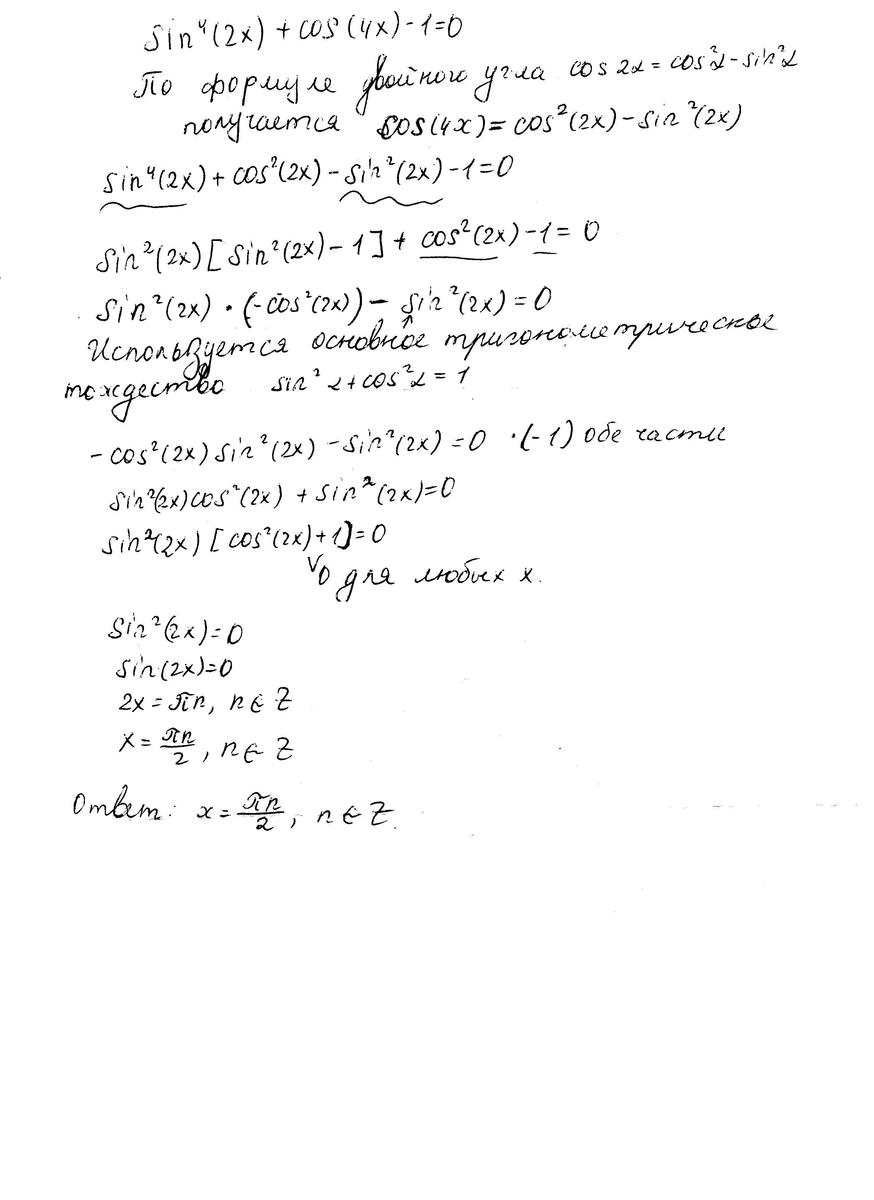 sin⁴(2x) + cos(4x) - 1 = 0
По формуле двойного угла cos 2α = cos²α - sin²α
получается cos(4x) = cos²(2x) - sin²(2x)
sin⁴(2x) + cos²(2x) - sin²(2x) - 1 = 0
sin²(2x)[sin²(2x) - 1] + cos²(2x) - 1 = 0
sin²(2x) · (-cos²(2x)) - sin²(2x) = 0
Используется основное тригонометрическое
тождество sin²α + cos²α = 1
- cos²(2x) sin²(2x) - sin²(2x) = 0 ·(-1) обе части
sin²(2x)cos²(2x) + sin²(2x) = 0
sin²(2x) [cos²(2x) + 1] = 0
∨0 для любых x.
sin²(2x) = 0
sin(2x) = 0
2x = πn, n ∈ Z
x = πn/2, n ∈ Z
Ответ: x = πn/2, n ∈ Z.